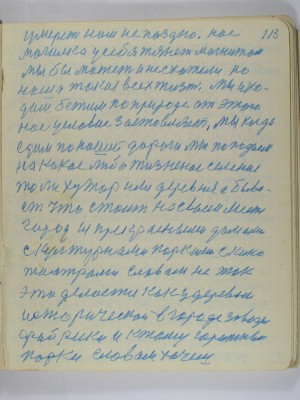 умереть нам не поздно. нас 113
могилка у себя тянет магнитом
мы бы может и не схотели но
наша такая всех тяж. мы ухо-
дим бежим по природе от этого
нас условие заставляет, мы когда
едим по нашей дороги мы попадаем
на какое либо жизненое селение
то ли хутор или деревня а быва-
ет что стоит на своем месте
город и прекрасными домами
с культурнами парками с кино
театрами словам не так
это делается как у деревни
исторической в городе заводы
фабрики и к тому
парки словам хочеш